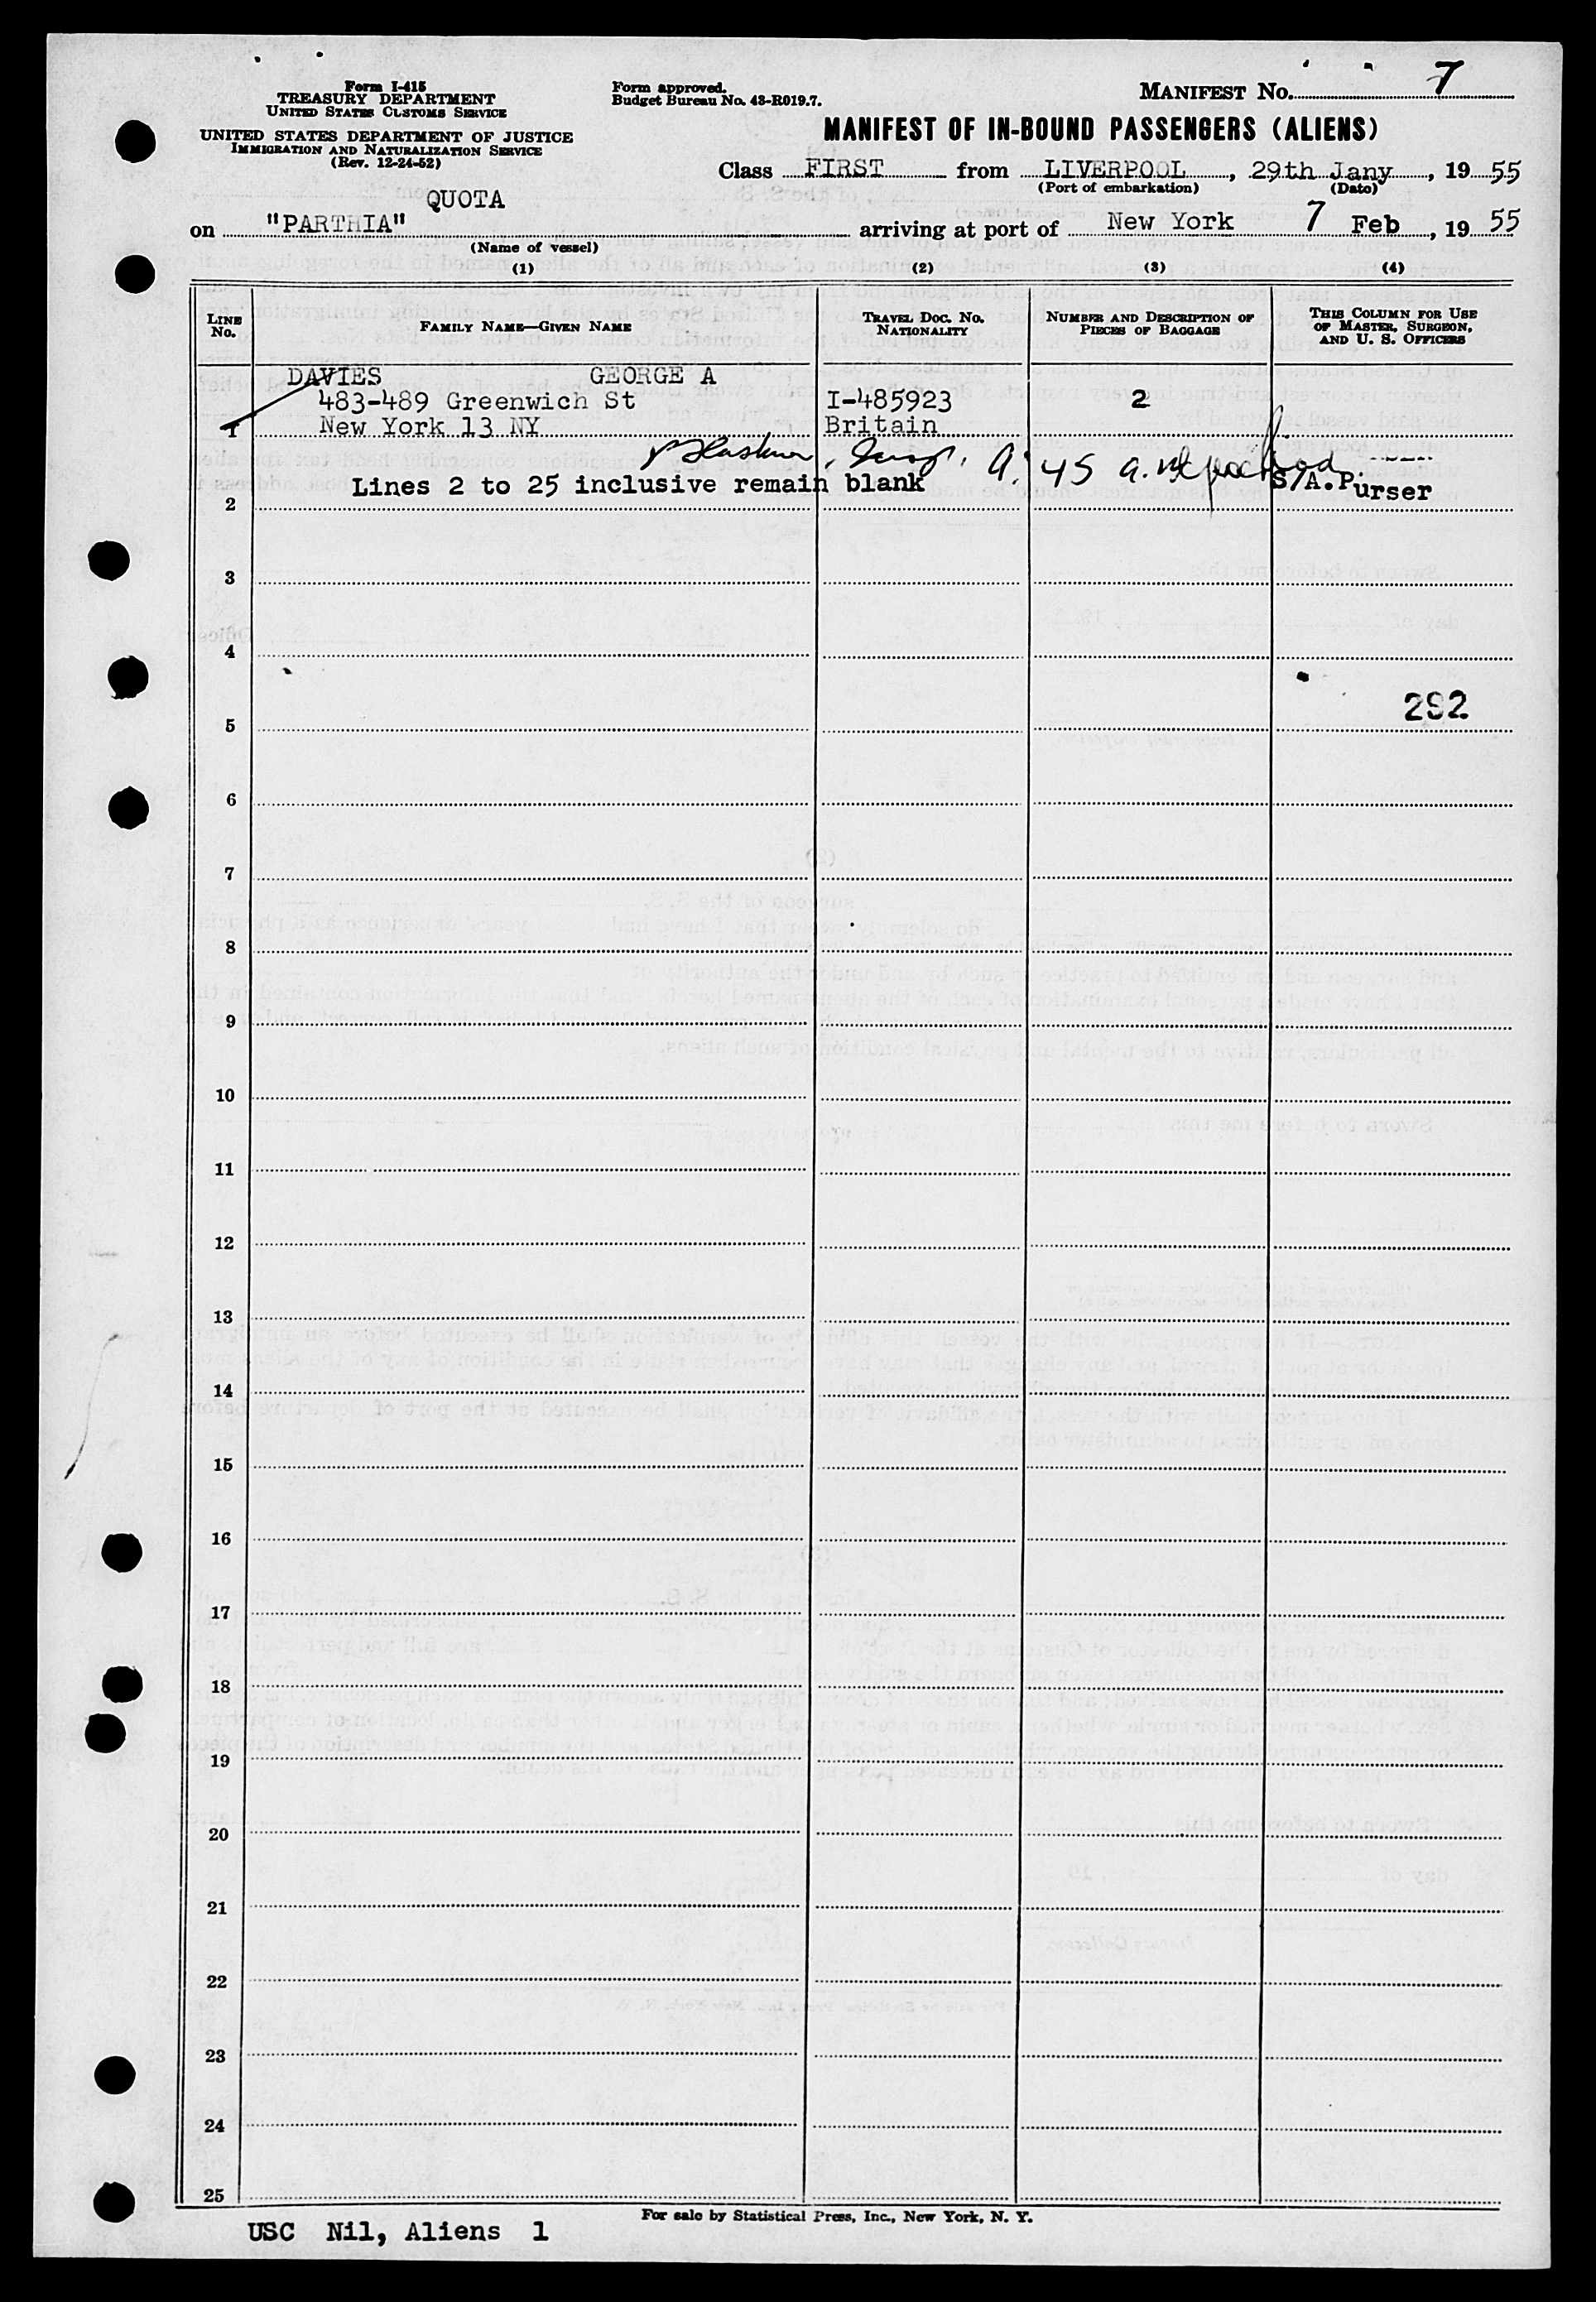 Form I-415
TREASURY DEPARTMENT
UNITED STATES CUSTOMS SERVICE
UNITED STATES DEPARTMENT OF JUSTICE
IMMIGRATION AND NATURALIZATION SERVICE
(Rev. 12-24-52)
Form approved.
Budget Bureau No. 43-R019.7.
MANIFEST NO. 7
MANIFEST OF IN-BOUND PASSENGERS (ALIENS)
Class FIRST from LIVERPOOL, 29th Jany, 1955
(Port of embarkation) (Date)
QUOTA
on "PARTHIA" arriving at port of New York 7 Feb, 1955
(Name of vessel)
(1) (2) (3) (4)
LINE NO. FAMILY NAME—GIVEN NAME TRAVEL DOC. NO. NATIONALITY NUMBER AND DESCRIPTION OF PIECES OF BAGGAGE THIS COLUMN FOR USE OF MASTER, SURGEON, AND U. S. OFFICERS
DAVIES GEORGE A
483-489 Greenwich St I-485923 2
1 New York 13 NY Britain
45
Lines 2 to 25 inclusive remain blank S/A.Purser
2
3
4
292
5
6
7
8
9
10
11
12
13
14
15
16
17
18
19
20
21
22
23
24
25
For sale by Statistical Press, Inc., New York, N. Y.
USC Nil, Aliens 1